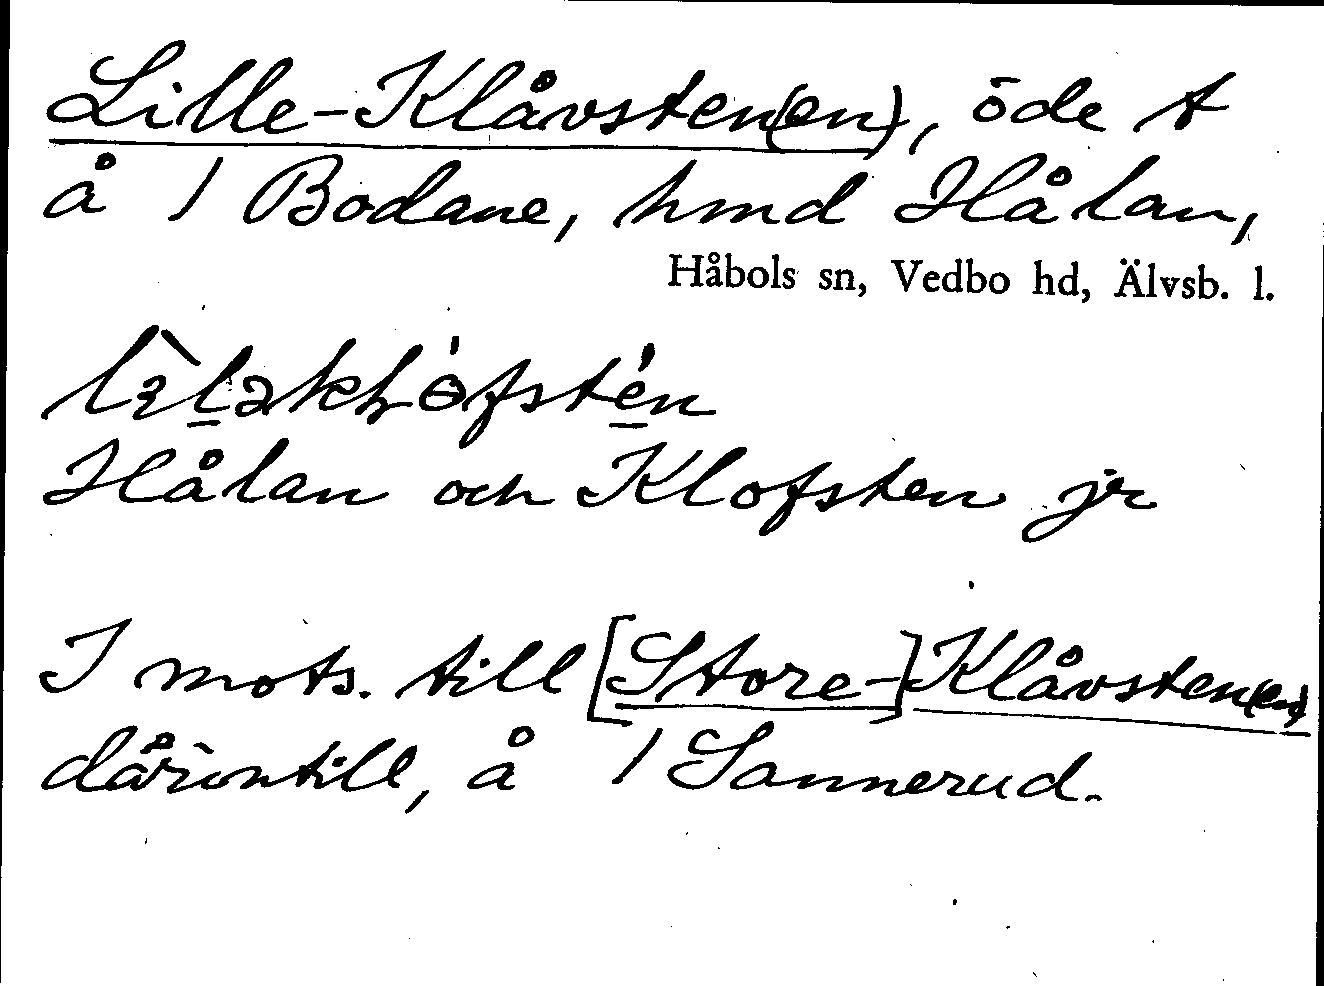 Lille-Klåvsten(en), öde t
å 1 Bodane, hmd Hålan,
Håbols sn, Vedbo hd, Älvsb. l.
Hålan och Klofsten jr
I mots. till [Store-]Klåvsten(en)
dårinvtill, å 1 Sannerud.